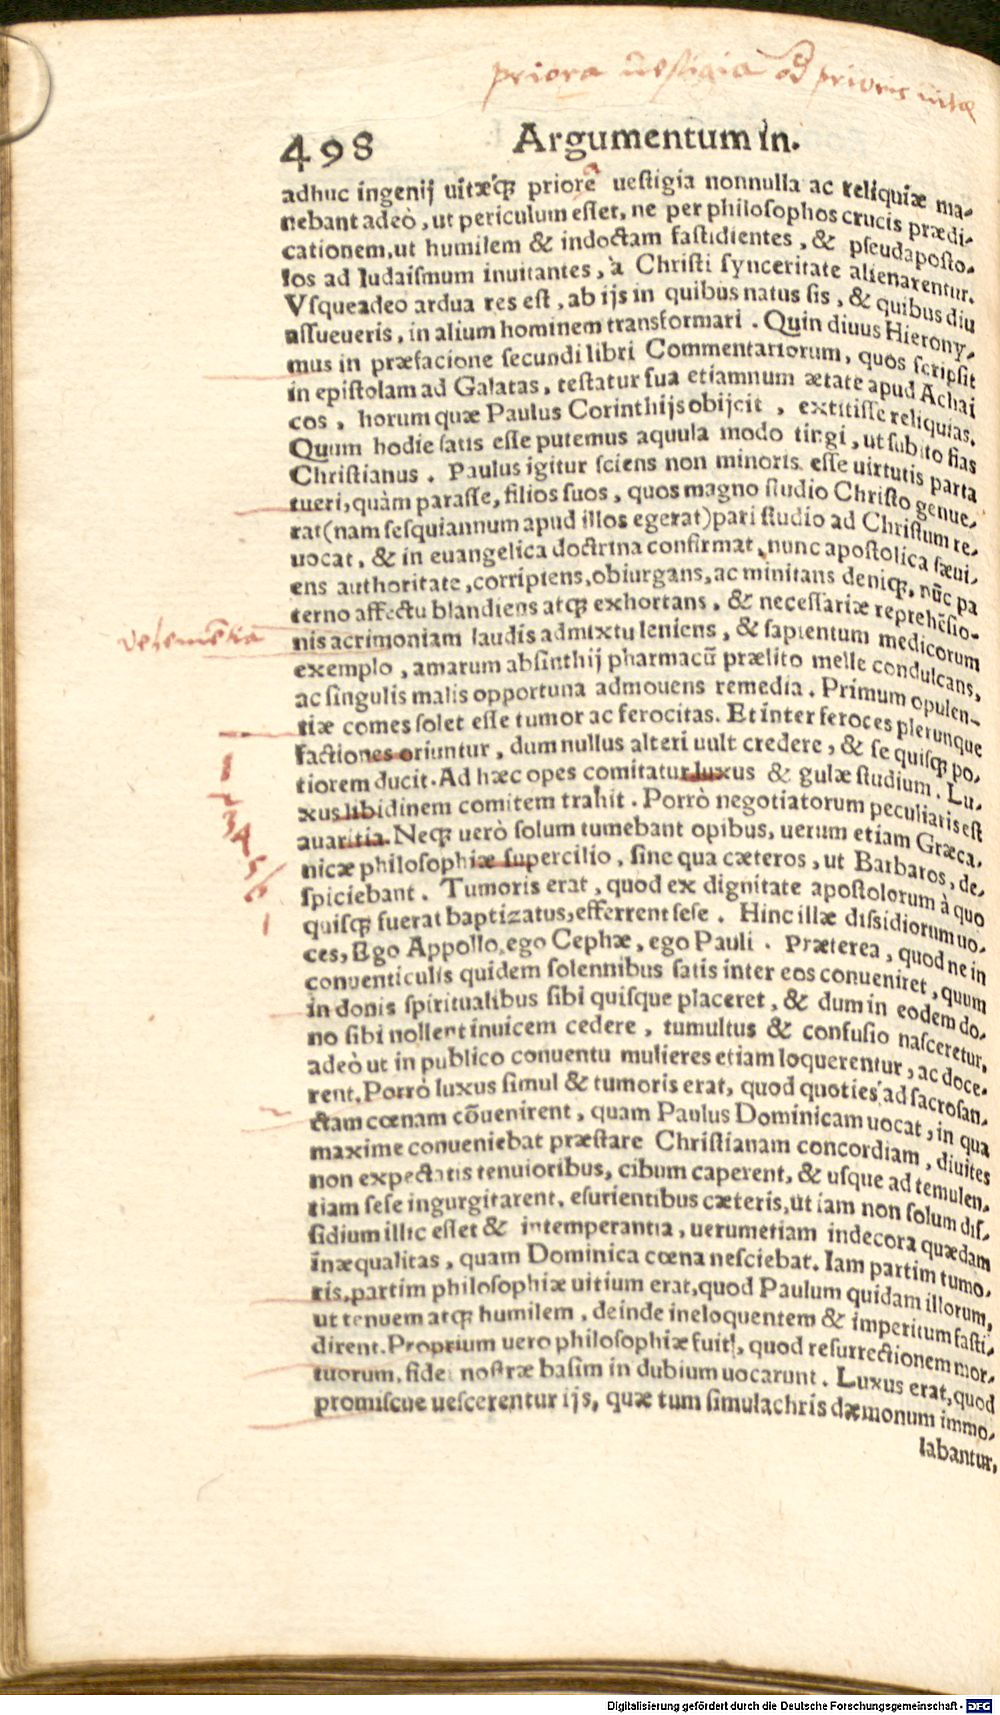 priora uestigia prioris uitæ
498 Argumentum in.
adhuc ingenij uitæq́ꝫ priorē uestigia nonnulla ac reliquiæ ma-
nebant adeò, ut periculum esset, ne per philosophos crucis prædi-
cationem, ut humilem & indoctam fastidientes, & pseudaposto-
los ad Iudaismum inuitantes, à Christi synceritate alienarentur.
Vsqueadeo ardua res est, ab ijs in quibus natus sis, & quibus diu
assueueris, in alium hominem transformari. Quin diuus Hierony-
mus in præfacione secundi libri Commentariorum, quos scripsit
in epistolam ad Galatas, testatur sua etiamnum ætate apud Achai
cos, horum quæ Paulus Corinthijs obijcit, extitisse reliquias.
Quum hodie satis esse putemus aquula modo tingi, ut subito fias
Christianus. Paulus igitur sciens non minoris esse uirtutis parta
tueri, quàm parasse, filios suos, quos magno studio Christo genue-
rat (nam sesquiannum apud illos egerat) pari studio ad Christum re-
uocat, & in euangelica doctrina confirmat, nunc apostolica sæui-
ens authoritate, corripiens, obiurgans, ac minitans deniqꝫ, nūc pa
terno affectu blandiens atqꝫ exhortans, & necessariæ reprehēsio-
vehemētia
nis acrimoniam laudis admixtu leniens, & sapientum medicorum
exemplo, amarum absinthij pharmacū prælito melle condulcans,
ac singulis malis opportuna admouens remedia. Primum opulen-
tiæ comes solet esse tumor ac ferocitas. Et inter feroces plerunque
factiones oriuntur, dum nullus alteri uult credere, & se quisqꝫ po-
1
tiorem ducit. Ad hæc opes comitatur luxus & gulæ studium. Lu-
2
xus libidinem comitem trahit. Porrò negotiatorum peculiaris est
3
4
auaritia. Neqꝫ uerò solum tumebant opibus, uerum etiam Græca-
5
nicæ philosophiæ supercilio, sine qua cæteros, ut Barbaros, de-
6
spiciebant. Tumoris erat, quod ex dignitate apostolorum à quo
1
quisqꝫ fuerat baptizatus, efferrent sese. Hinc illæ dissidiorum uo-
ces, Ego Appollo, ego Cephæ, ego Pauli. Præterea, quod ne in
conuenticulis quidem solennibus satis inter eos conueniret, quum
in donis spiritualibus sibi quisque placeret, & dum in eodem do-
no sibi nollent inuicem cedere, tumultus & confusio nasceretur,
adeò ut in publico conuentu mulieres etiam loquerentur, ac doce-
rent. Porrò luxus simul & tumoris erat, quod quoties ad sacrosan-
ctam cœnam cōuenirent, quam Paulus Dominicam uocat, in qua
maxime conueniebat præstare Christianam concordiam, diuites
non expectatis tenuioribus, cibum caperent, & usque ad temulen-
tiam sese ingurgitarent, esurientibus cæteris, ut iam non solum dis-
sidium illic esset & intemperantia, uerumetiam indecora quædam
inæqualitas, quam Dominica cœna nesciebat. Iam partim tumo-
ris, partim philosophiæ uitium erat, quod Paulum quidam illorum,
ut tenuem atqꝫ humilem, deinde ineloquentem & imperitum fasti-
dirent. Proprium uero philosophiæ fuit, quod resurrectionem mor-
tuorum, fidei nostræ basim in dubium uocarunt. Luxus erat, quod
promiscue uescerentur ijs, quæ tum simulachris dæmonum immo-
labantur,
Digitalisierung gefördert durch die Deutsche Forschungsgemeinschaft - DFG